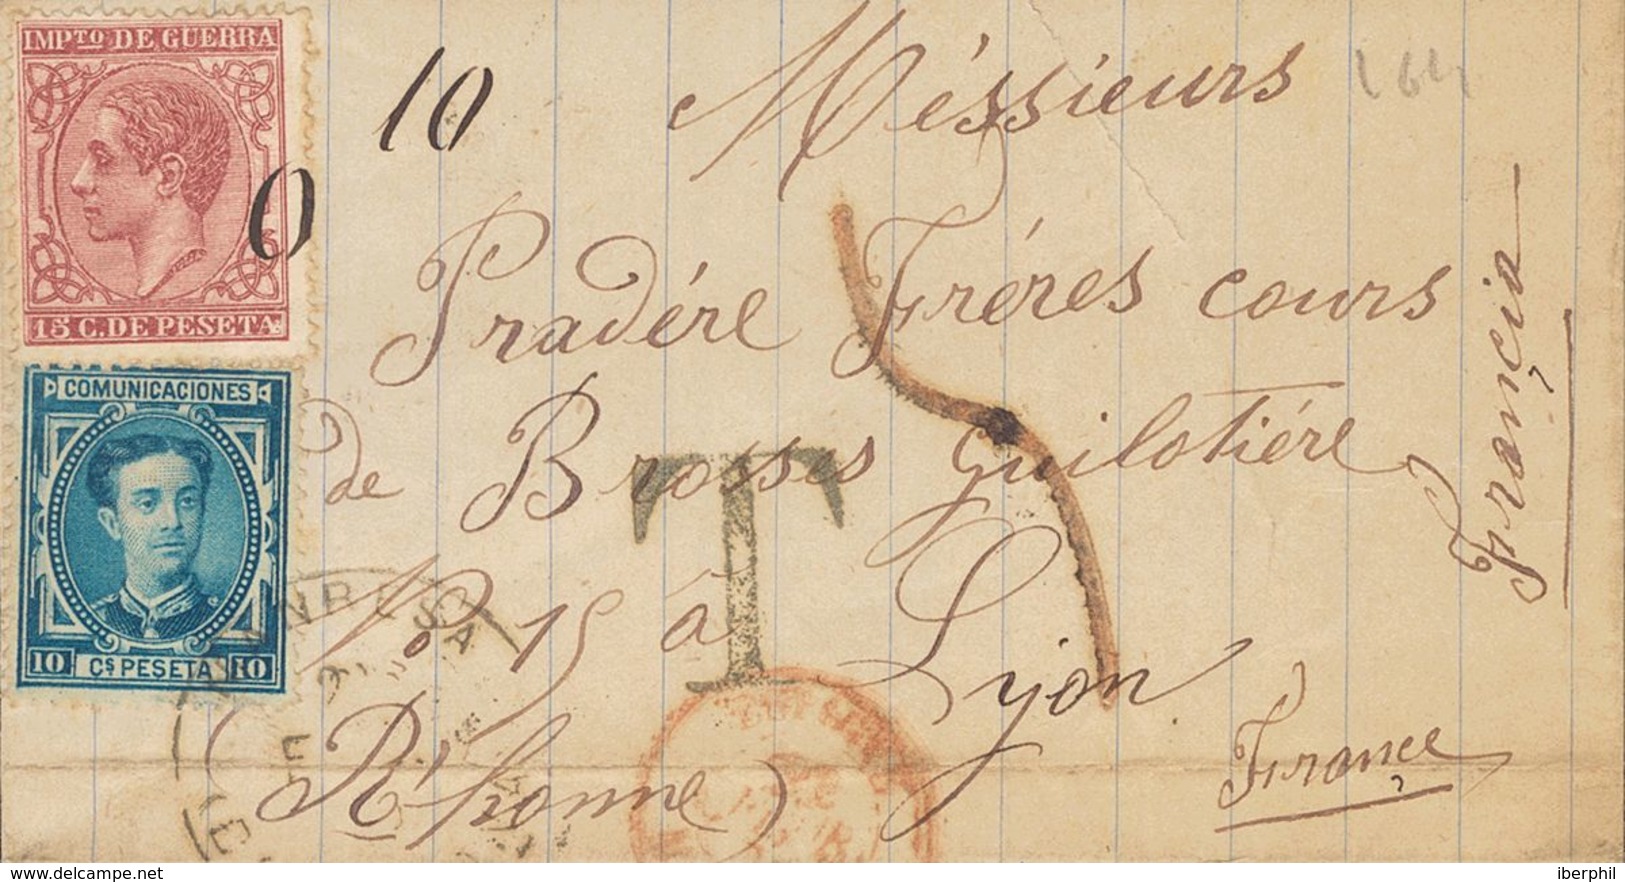 IMPTO DE GUERRA
15 C. DE PESETA
COMUNICACIONES
10 CS PESETA 10
10
0
164
Méssieurs
Pradére Fréres cours
de Brosses Guilotiére
No 15 à Lyon
(R'honne)
France
Françia
T
delcampe.net
iberphil